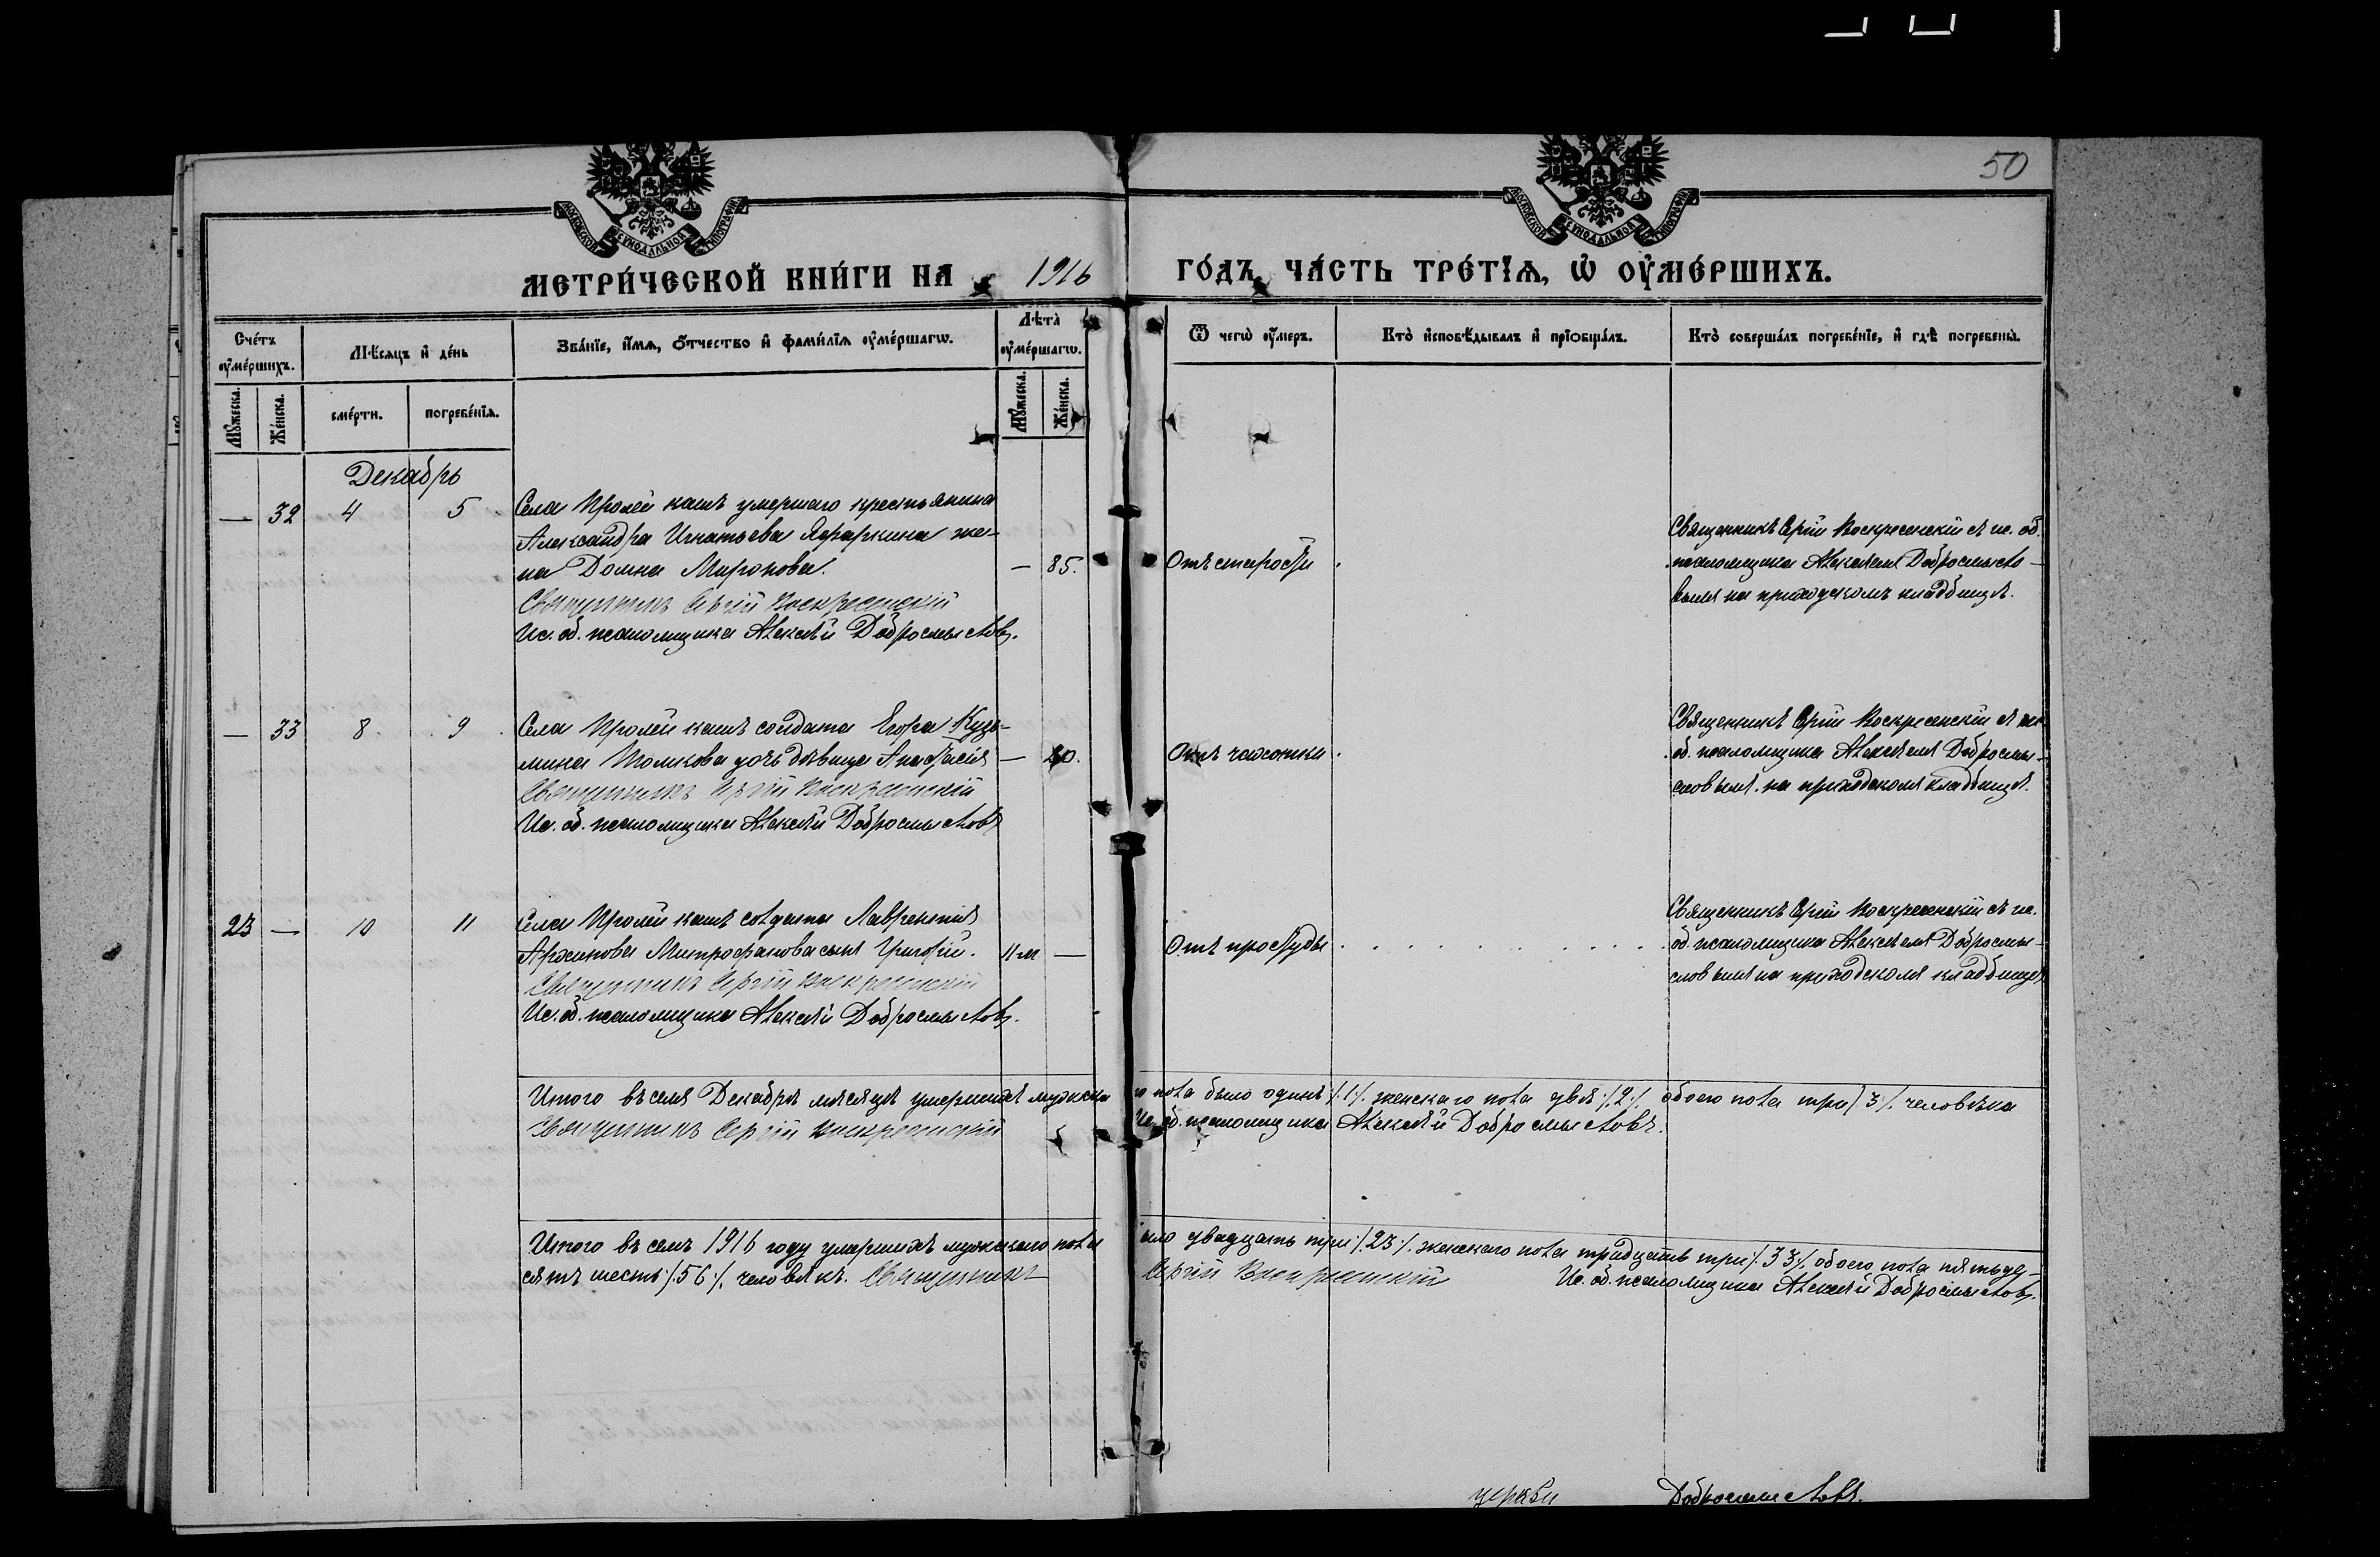 50
МОСКОВСКОЙ СУНОДАЛЬНОЙ ТИПОГРАФІИ
МОСКОВСКОЙ СУНОДАЛЬНОЙ ТИПОГРАФІИ
МЕТРИ́ЧЕСКОЙ КНИ́ГИ НА 1916 ГО́ДЪ, ЧА́СТЬ ТРЕ́ТІѦ, Ѡ ОУМЕ́РШИХЪ.
Сче́тъ оуме́ршихъ.
Мꙋжеска. Же́нска.
Мѣсяцъ и де́нь
сме́рти. погребе́нїѧ.
Зва́нїе, и́мѧ, о́тчество и фами́лїѧ оуме́ршагѡ.
Лѣта̀ оуме́ршагѡ.
Мꙋжеска. Же́нска.
Ѿ чегѡ̀ оу́меръ.
Кто̀ исповѣ́дывалъ и прїѡбща́лъ.
Кто̀ соверша́лъ погребе́нїе, и гдѣ̀ погребены̀.
Декабрь
— 32 4 5 Села Пролей кашъ умершаго крестьянина
Александра Игнатьева же-
на Домна Миронова. — 85. Отъ старости
Священникъ Сергій Воскресенскій
Ис. об. псаломщика Алексѣй Добросмысловъ.
Священникъ Сергій Воскресенскій съ ис. об.
псаломщика Алексѣемъ Добросмысло-
вымъ на приходскомъ кладбищѣ.
— 33 8 9 Села Пролей кашъ солдата Егора Кузь-
мина дочь дѣвица Анастасія — 20. Отъ чахотки
Священникъ Сергій Воскресенскій
Ис. об. псаломщика Алексѣй Добросмысловъ
Священникъ Сергій Воскресенскій съ ис.
об. псаломщика Алексѣемъ Добросмы-
словымъ на приходскомъ кладбищѣ.
23 — 10 11 Села Пролей кашъ солдата Лаврентія
Архипова Митрофанова сынъ Григорій. 11 м — Отъ простуды
Священникъ Сергій Воскресенскій
Ис. об. псаломщика Алексѣй Добросмысловъ.
Священникъ Сергій Воскресенскій съ ис.
об. псаломщика Алексѣемъ Добросмы-
словымъ на приходскомъ кладбищѣ
Итого въ семъ Декабрѣ мѣсяцѣ умершихъ мужска го пола было одинъ /.1./. женскаго пола двѣ /.2./. обоего пола три /.3./. человѣка
Священникъ Сергій Воскресенскій Ис. об. псаломщика Алексѣй Добросмысловъ.
Итого въ семъ 1916 году умершихъ мужскаго пола было двадцать три /.23./. женскаго пола тридцать три /.33./. обоего пола пятьде-
сятъ шесть /.56./. человѣкъ. Священникъ Сергій Воскресенскій Ис. об. псаломщика Алексѣй Добросмысловъ.
церкви Добросмысловъ.